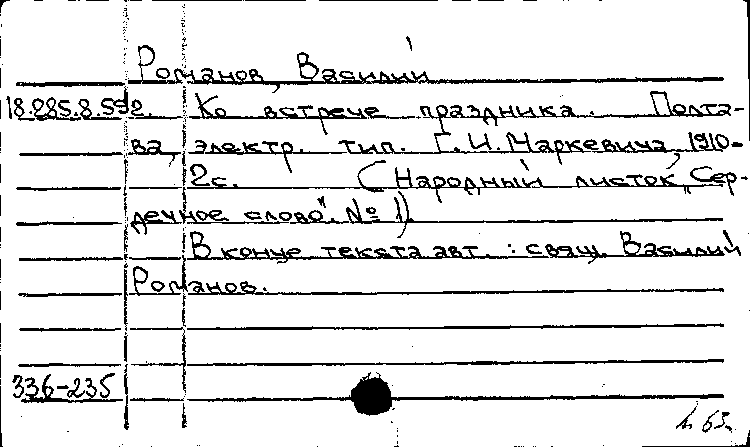 Романов, Василий
18.285.8.592. Ко встрече праздника. Полта-
ва, электр. тип. Г.И. Маркевича, 1910.
2с. (Народный листок „Сер-
дечное слово". № 1).
В конце текста авт.: свящ. Василий
Романов.
336-235
63